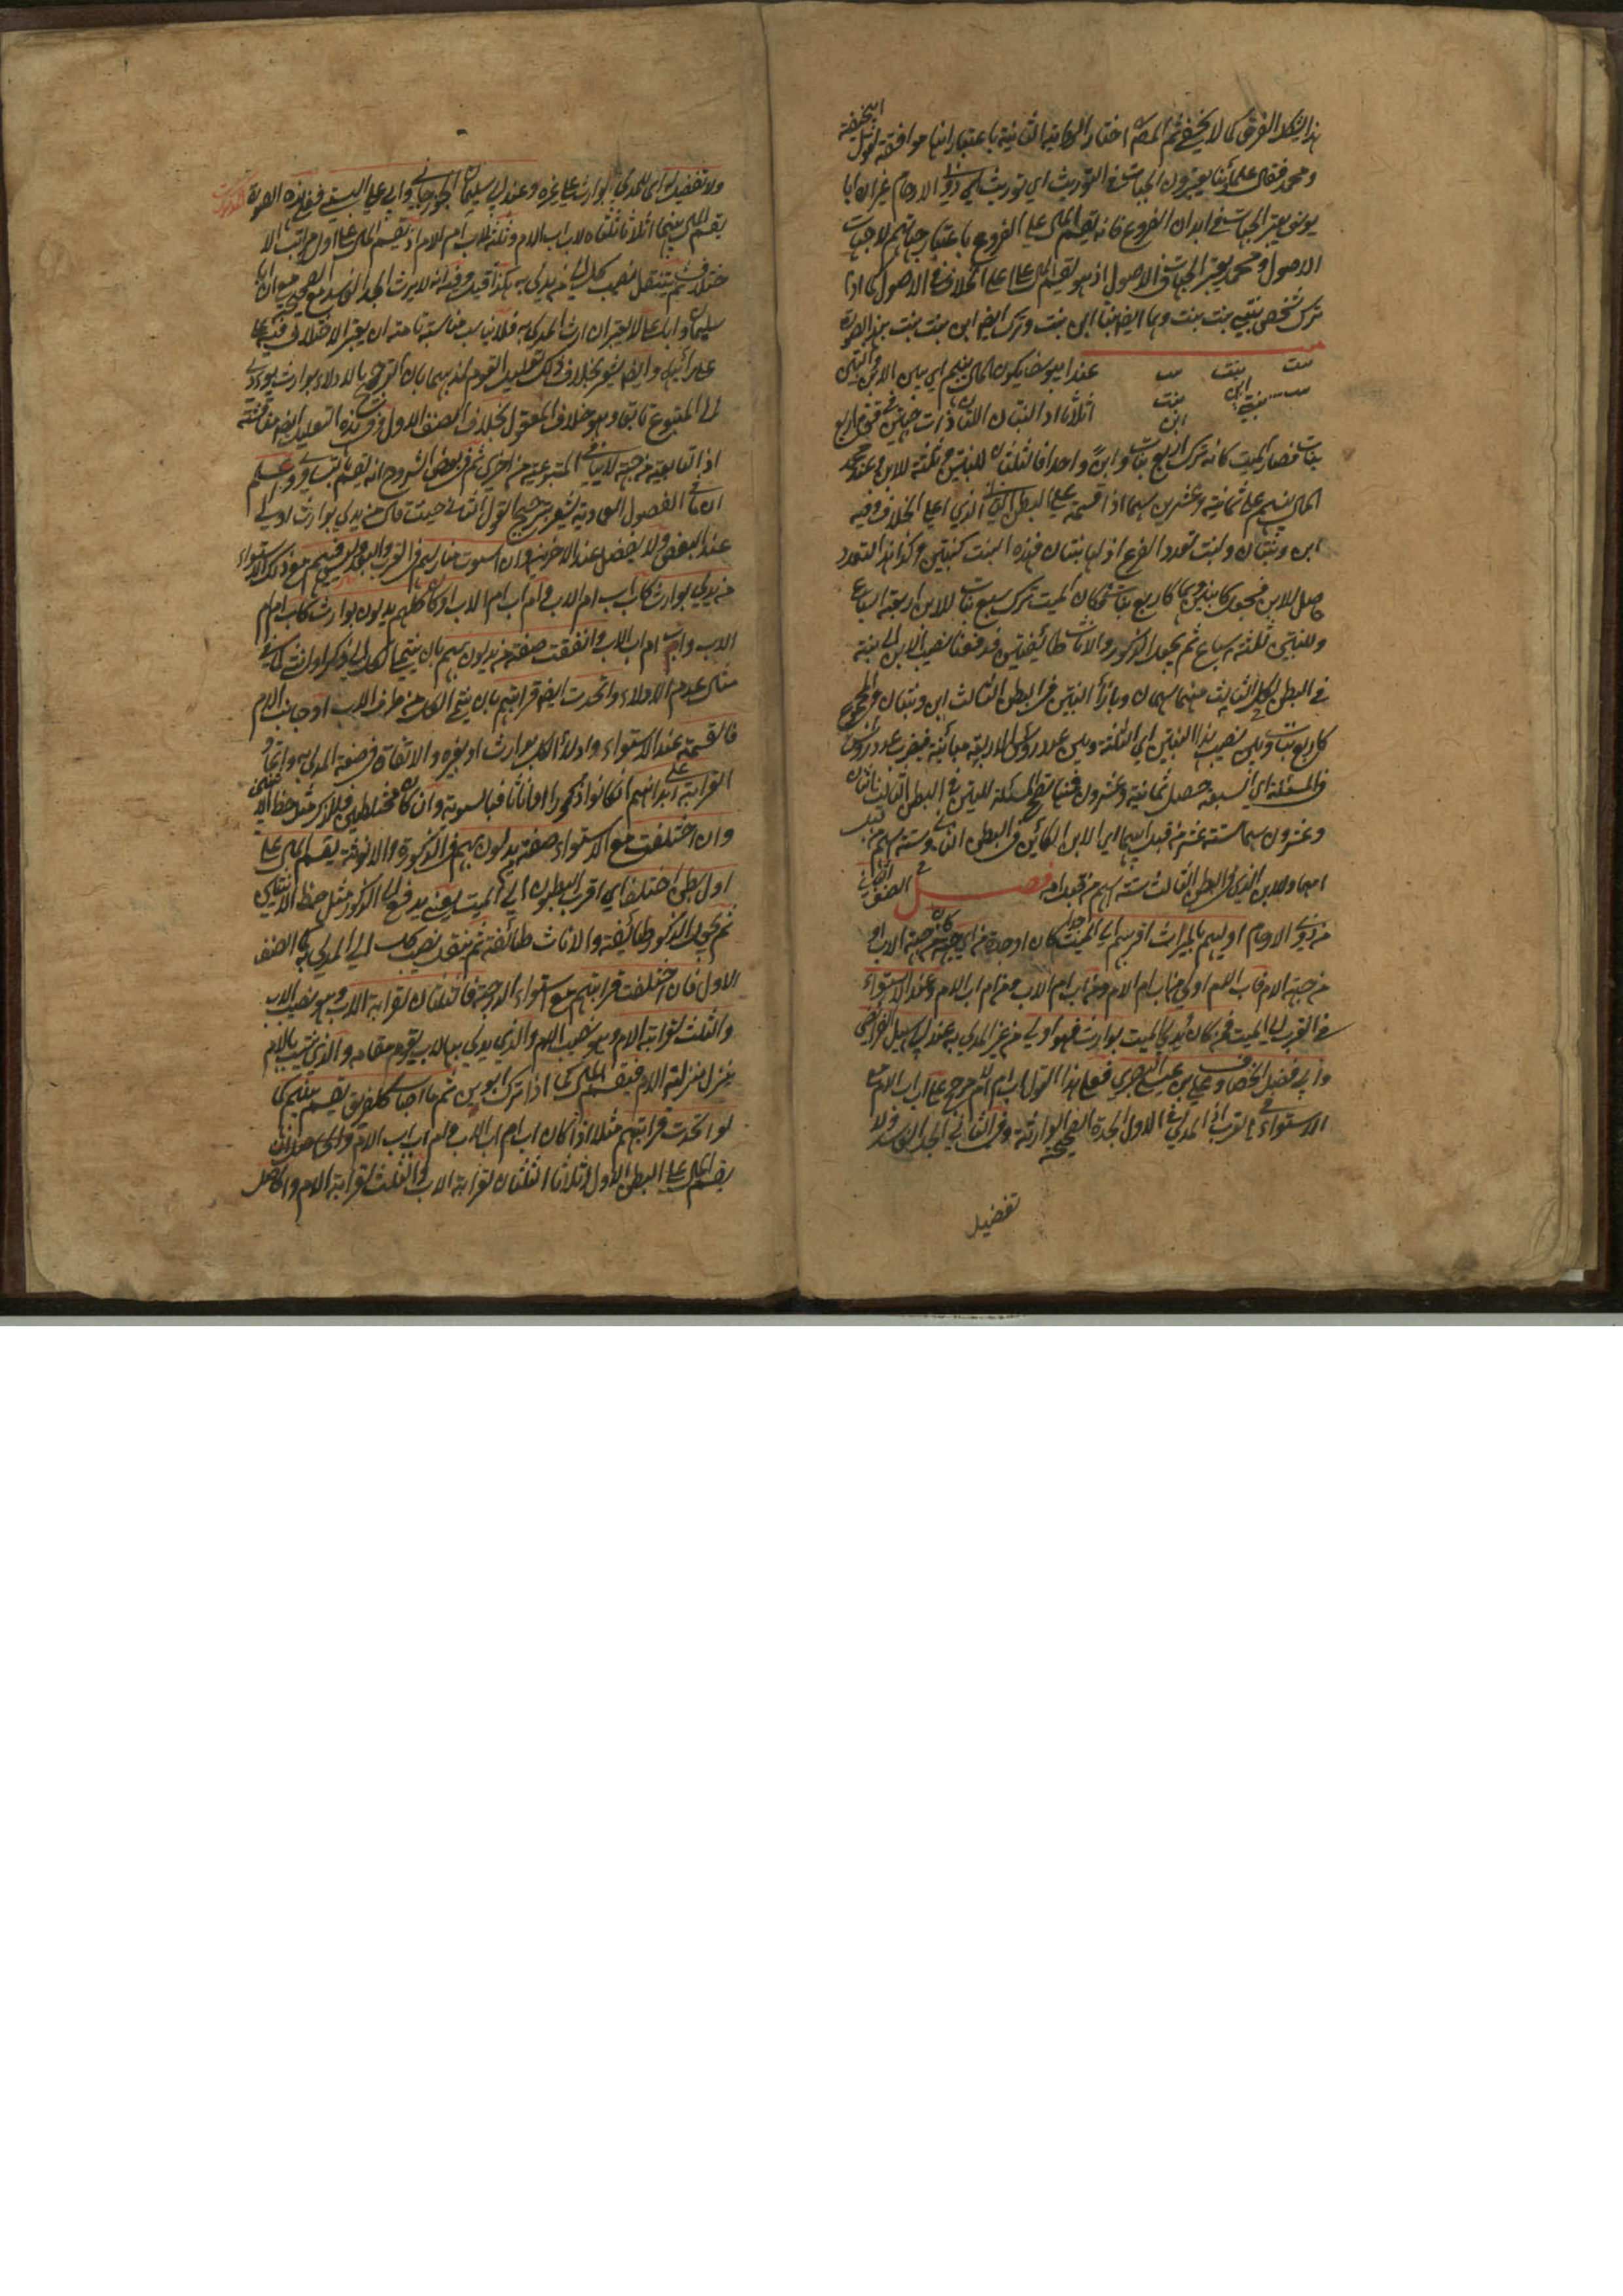 هذا يشكل الفرق كما لا يخفى ثم المصـ اختار الرواية الثانية باعتبار انها موافقة لقول ابيحنيفة
ومحمد فقال علمائنا يعتبرون الجهات في التوريث اي توريث ذوي الارحام غير ان ابا
يوسف يعتبر الجهات في ابدان الفروع فانه يقسم المال على الفروع باعتبار جهاتهم لا جهات
الاصول ومحمد يعتبر الجهات في الاصول اذ هو يقسم المال على اعلى الخلاف في الاصول كما اذا
ترك شخص بنتي بنت بنت وهما ايضا بنتا ابن بنت وترك ايضا ابن بنت بنت بهذه الصورة
بنت بنت بنت عند ابيوسف يكون المال بينهم اي بين الابن والبنتين
بنت ابن بنت
بنته ابن اثلاثا اذ البنتان اللتان ذات جهتين في قوة اربع
بنات فصار الميت كانه ترك اربع بنات وابنا واحدا فالثلثان للبنتين وثلثه للابن وعند محمد
المال بينهم على ثمانية وعشرين سهما اذا قسمته على البطن الثاني الذي اعلى الخلاف وفيه
ابن وبنتان وبنت تعدد الفرع اذ لها بنتان فهذه البنت كبنتين وكذا هذا التعدد
حاصل للابن فيجعل كابنين وهما كاربع بنات فكان الميت ترك سبع بنات للابن اربعة اسباع
وللبنتين ثلثة اسباع ثم يجعل الذكور والاناث طائفتين فدفعنا نصيب الابن الى بنتيه
في البطن الثالث لكل منهما سهمان وبازاء البنتين في البطن الثالث ابن وبنتان فالمجموع
كاربع بنات وبين نصيب هذا البنتين اي الثلثة وبين عدد رؤس الاربعة مباينة فيضرب عدد الرؤس
في المسئلة اي السبعة حصل ثمانية وعشرون فمنها تصح المسئلة للبنتين في البطن الثالث اثنان
وعشرون سهما ستة عشر من قبل ابيهما اي الابن الكائن في البطن الثاني وستة اسهم من قبل
امهما وللابن الذي في البطن الثالث ستة اسهم من قبل امه فصل في الصنف الثاني
من ذوي الارحام اوليهم بالميراث اقربهم الى الميت جدا كان او جدة من اي جهة كان من جهة الاب او
من جهة الام فاب الام اولى من اب ام الام ومن اب ام الاب ومن ام اب الام وعند الاستواء
في القرب الى الميت فمن كان يدلي الى الميت بوارث فهو اولى من غير المدلي به عند ابي سهيل الفرائضي
وابي فضل الخصاف وعلي بن عيسى البصري فعلى هذا القول اب ام الام مرجح على اب اب الام مع
الاستواء في القرب اذ المدلى في الاول الجدة الصحيحة الوارثة وفي الثاني الجد الفاسد ولا
تفضيل
ولا تفضيل له اي للمدلي بوارث على غيره وعند ابي سليمان الجورجاني وابي علي البستي ففي هذه الصورة المذكورة
يقسم المال بينهما اثلاثا ثلثاه لاب اب الام وثلثه لاب ام الام اذ يقسم المال على اول مراتب الا
ختلاف ثم ينتقل نصيب كل الى من يدلي به هكذا قيل وفيه انه لا يرث الجد الفاسد مع الصحيح مع ان ابا
سليمان وابا علي لا يعتبران ارث المدلى به فلا يناسب مناسبة تامة ان يعتبر الاختلاف فيه على
على رائهما وايضا يشعر بخلاف ذلك تعليل القوم لمذهبهما بان الترجيح بالادلاء بوارث يؤدي
الى المتبوع تابعا وهو خلاف المعقول بخلاف الصنف الاول وفي هذه التعليل ايضا مناقشة
اذ التابعية من جهة لا ينافي المتبوعية من اخرى ثم في بعض الشروح انه يقسم بالتساوي وعلم
ان في الفصول العمادية يشعر بترجيح القول الثاني حيث قال من يدلي بوارث اولى
عند البعض ولا يفضل عند الاخرين وان استوت منازلهم في القرب والبعد وليس فيهم مع ذلك الاستواء
من يدلي بوارث كاب اب ام الاب وام اب ام الاب او كان كلهم يدلون بوارث كاب ام ام
الاب واب ام اب الاب واتفقت صفة من يدلون بهم بان ينتهي الكل الى ذكر او انثى كما في
مثال عدم الادلاء واتحدت ايضا قرابتهم بان ينتهي الكل من طرف الاب او جانب الام
فالقسمة عند الاستواء وادلاء الكل بوارث او بغيره والاتفاق في صفة المدلى به واتحاد
القرابة على ابدانهم ان كانوا ذكورا او اناثا فبالسوية وان كان مختلطين فللذكر مثل حظ الانثيين
وان اختلفت مع الاستواء صفة من يدلون بهم في الذكورة والانوثة يقسم المال على
اول بطن اختلف اي اقرب البطون الى الميت يعني يدفع الى الذكور مثل حظ الانثيين
ثم يجعل الذكور طائفة والاناث طائفة ثم ينتقل نصيب كل الى المدلي به كما الصنف
الاول فان اختلفت قرابتهم مع استواء الدرجة فالثلثان لقرابة الاب وهو نصيب الاب
والثلث لقرابة الام وهو نصيب الام والذي يدلي بالاب يقوم مقامه والذي ينتسب بالام
ينزل منزلة الام فيقسم المال كما اذا ترك ابوين ثم ما اصاب كل فريق يقسم بينهم كما
لو اتحدت قرابتهم مثلا اذا كان اب ام اب الاب وام اب اب الام والحاصل ان
يقسم المال على البطن الاول اثلاثا الثلثان لقرابة الاب والثلث لقرابة الام والحاصل